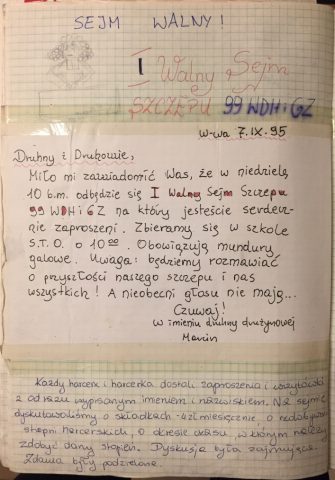 SEJM WALNY!
I Walny Sejm
SZCZEPU 99 WDH i GZ
W-wa 7.IX.95
Druhny i Druhowie,
Miło mi zawiadomić Was, że w niedzielę
10 b.m. odbędzie się I Walny Sejm Szczepu
99 WDH i GZ na który jesteście serdecz-
nie zaproszeni. Zbieramy się w szkole
S.T.O. o 10⁰⁰. Obowiązują mundury
galowe. Uwaga: będziemy rozmawiać
o przyszłości naszego szczepu i nas
wszystkich! A nieobecni głosu nie mają...
Czuwaj!
w imieniu druhny drużynowej
Marcin
Każdy harcerz i harcerka dostali zaproszenia i wizytówki
z od razu wypisanym imieniem i nazwiskiem. Na sejmie
dyskutowaliśmy o składkach - miesięcznie, o zdobywaniu
stopni harcerskich, o okresie czasu, w którym należy
zdobyć dany stopień. Dyskusja była zajmująca.
Zdania były podzielone.